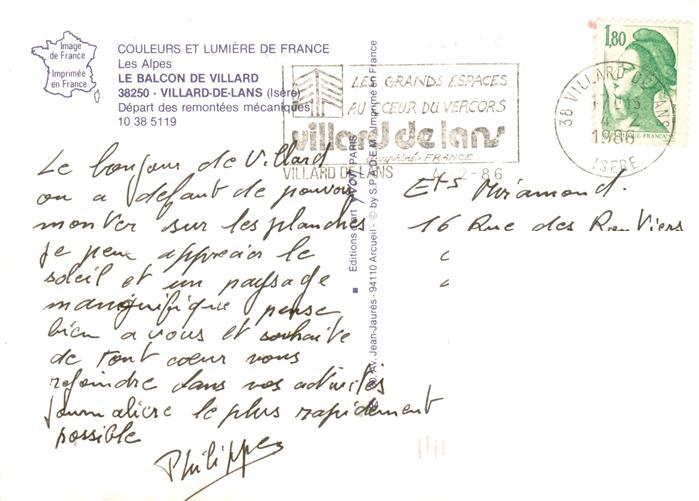 Image
de France
Imprimée
en France
COULEURS ET LUMIÈRE DE FRANCE
Les Alpes
LE BALCON DE VILLARD
38250 - VILLARD-DE-LANS (Isère)
Départ des remontées mécaniques
10 38 5119
LES GRANDS ESPACES
AU CŒUR DU VERCORS
villard de lans
dauphiné-FRANCE
VILLARD DE LANS 4-2-86
1,80
38 VILLARD DE LANS
4 2
1986
ISERE
Le bonjour de Villard
ou a defaut de pouvoir
monter sur les planches
je peu apprecier le
soleil et un paysage
manguifique pense
bien a vous et souhaite
de tout coeur vous
rejoindre dans vos activités
journaliere le plus rapidement
possible
Philippe
Editions d'art YVON PARIS
Av. Jean-Jaurès - 94110 Arcueil - © by S.P.A.D.E.M. Imprimé en France
Ets Miramond.
16 Rue des Rouviers